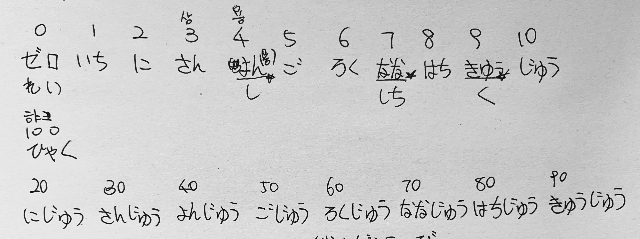 삼 용
0 1 2 3 4 5 6 7 8 9 10
ゼロ いち に さん よん ご ろく なな はち きゅう じゅう
れい し しち く
햐쿠
100
ひゃく
20 30 40 50 60 70 80 90
にじゅう さんじゅう よんじゅう ごじゅう ろくじゅう ななじゅう はちじゅう きゅうじゅう